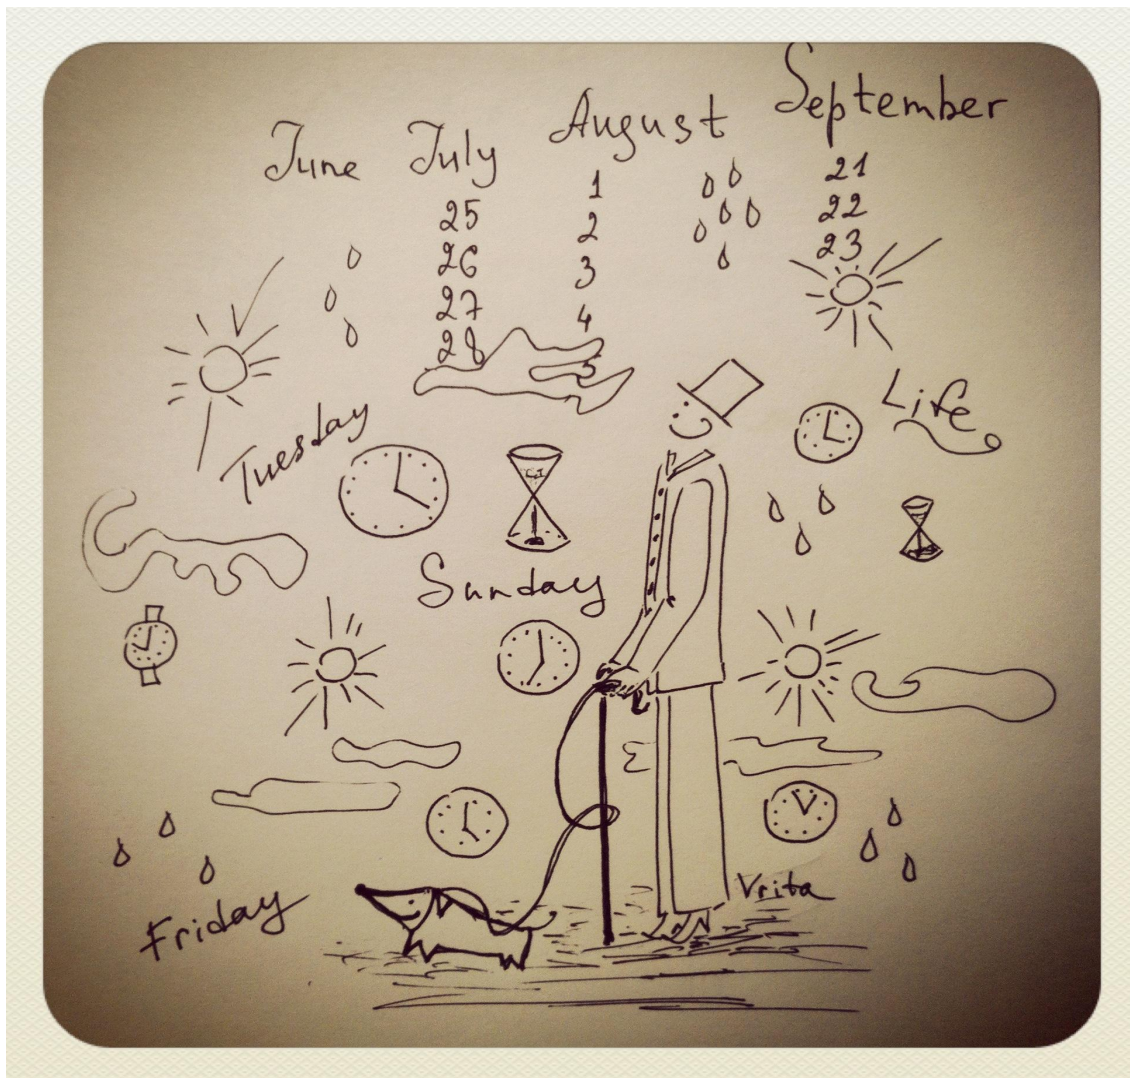 June July August September
25
26
27
28
1
2
3
4
5
21
22
23
Life
Tuesday
Sunday
Friday
Vrita